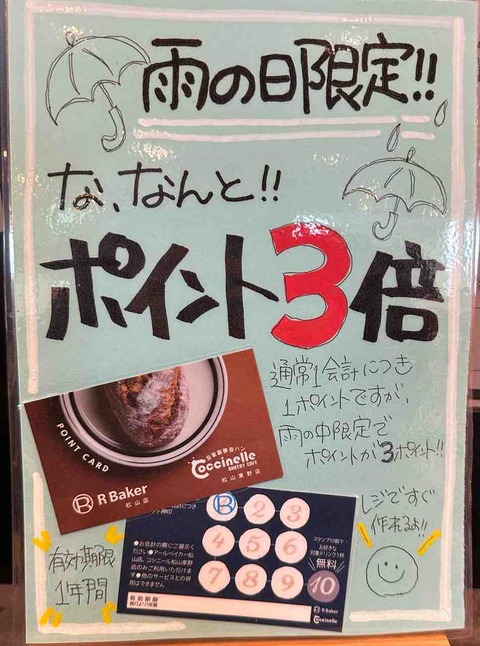 雨の日限定!!
な、なんと!!
ポイント3倍
通常1会計につき
1ポイントですが、
雨の中限定で
ポイントが3ポイント!!
POINT CARD
R Baker
松山店
自家製酵母パン
Coccinelle
BAKERY CAFE
松山東野店
レジですぐ
作れるよ!!
有効期限
1年間
R 2 3
4 5 6
7 8 9 10
スタンプ10個で
お好きな
対象ドリンク1杯
無料
●お会計の際にご提示く
ださい●アールベイカー松山
店、コシニール松山東野
店のみご利用いただけま
す●他のサービスとの併
用はできません
有効期限
R Baker
Coccinelle